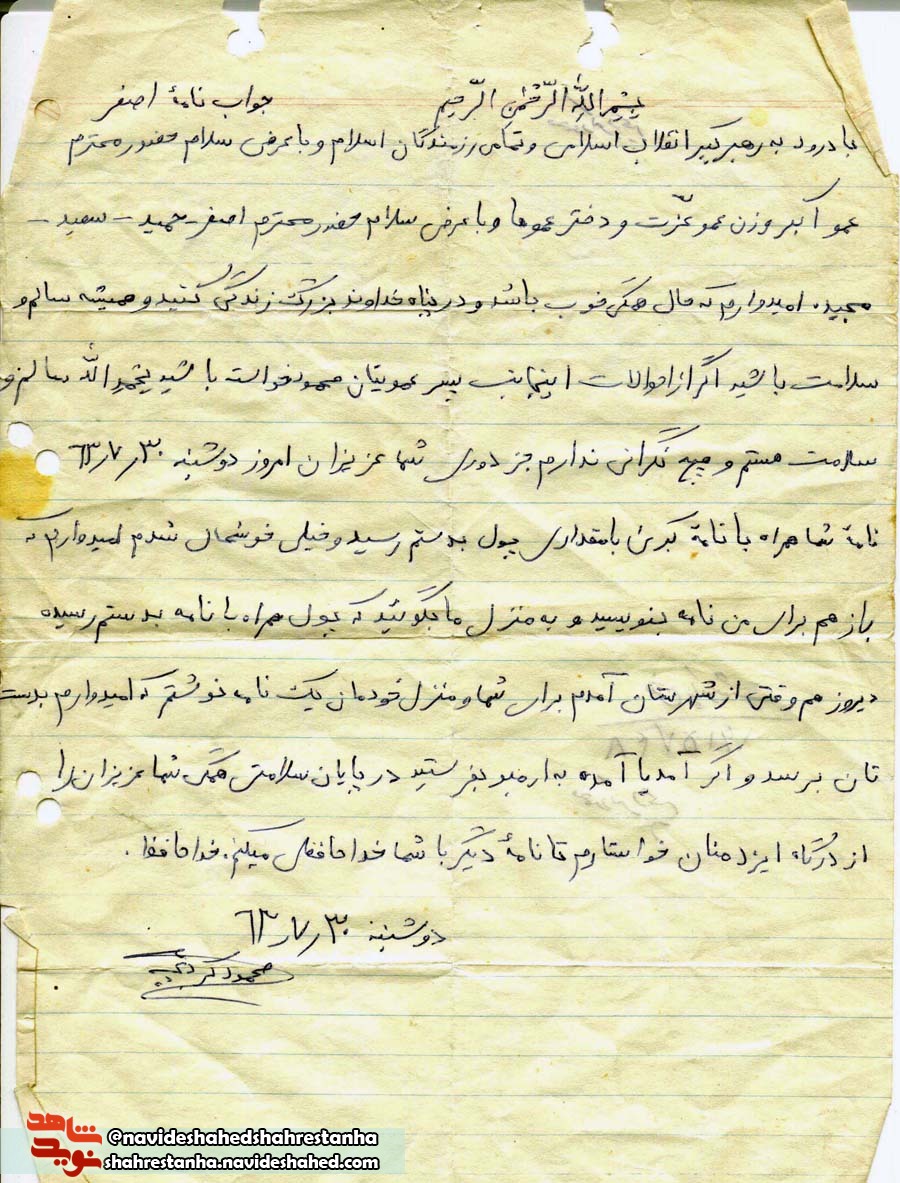 بِسْمِ اللّهِ الرَّحْمٰنِ الرَّحیم
جواب نامهٔ اصغر
با درود به رهبر کبیر انقلاب اسلامی و تمامی رزمندگان اسلام و با عرض سلام حضور محترم
عمو اکبر و زن عمو عزّت و دختر عموها و با عرض سلام حضور محترم اصغر - حمید - سعید -
مجید. امیدوارم که حال همگی خوب باشد و در پناه خداوند بزرگ زندگی کنید و همیشه سالم و
سلامت باشید اگر از احوالات اینجانب پسر عمویتان محمود خواسته باشید بحمد اللّه سالم و
سلامت هستم و هیچ نگرانی ندارم جز دوری شما عزیزان امروز دوشنبه ۶۳/۷/۳۰
نامهٔ شما همراه با نامهٔ با مقداری پول بدستم رسید و خیلی خوشحال شدم امیدوارم که
باز هم برای من نامه بنویسید و به منزل ما بگوئید که پول همراه با نامه بدستم رسیده
دیروز هم وقتی از شهرستان آمدم برای شما و منزل خودمان یک نامه نوشتم که امیدوارم بدست
تان برسد و اگر آمد یا آمده به بفرستید در پایان سلامتی همگی شما عزیزان را
از درگاه ایزد منان خواستارم تا نامهٔ دیگر با شما خداحافظی میکنم. خداحافظ.
دوشنبه ۶۳/۷/۳۰
محمود
شاهد
نوید
@navideshahedshahrestanha
shahrestanha.navideshahed.com